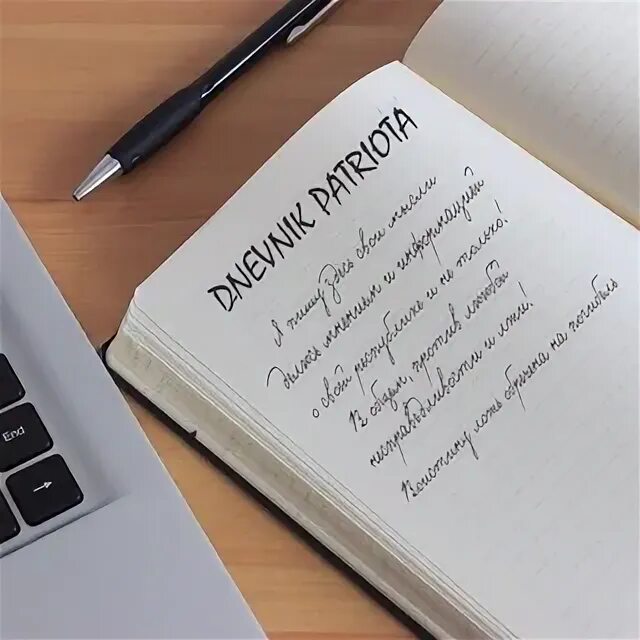 DNEVNIK PATRIOTA
Я пишу здесь свои мысли
Делюсь мнением и информацией
о своей республике и не только!
В общем, против любой
несправедливости и лжи!
Воистину ложь обречена на погибель
End
→